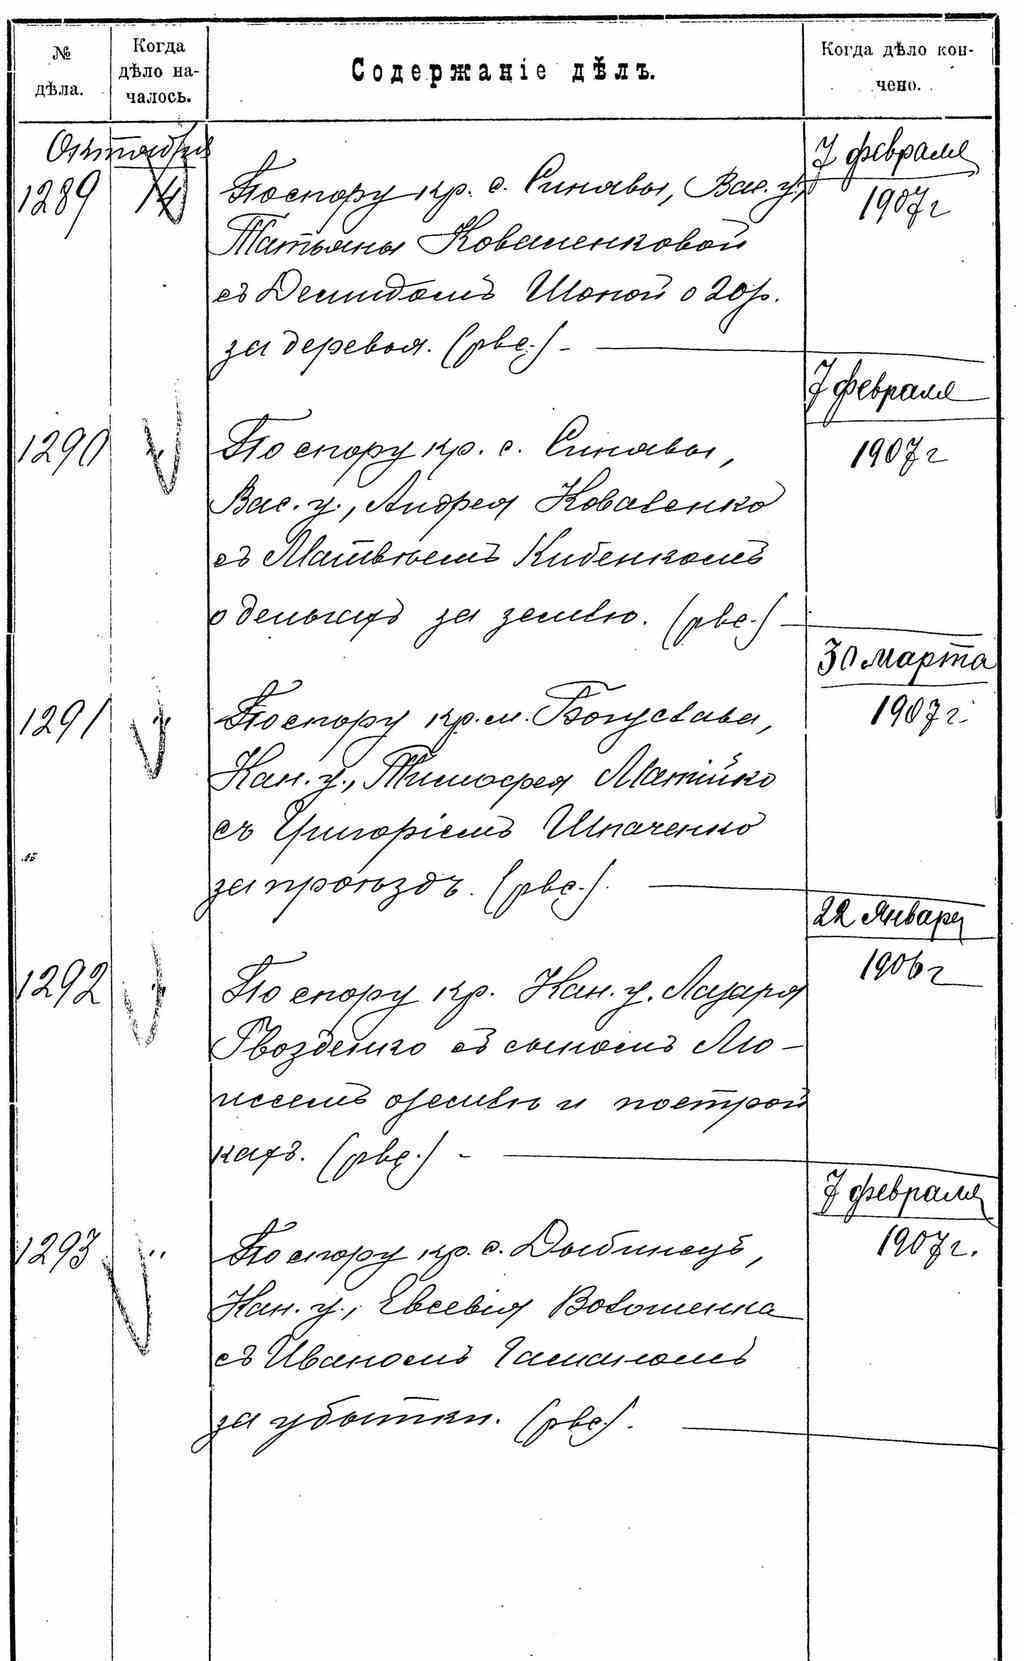 № дѣла.
Когда дѣло на-чалось.
Содержаніе дѣлъ.
Когда дѣло кон-чено.
Октября
1289 14 По спору кр. с. Синявы, Вас. у., 7 февраля
Татьяны Коваленковой 1907 г
съ Демидомъ Шопой о 20 р.
за деревья. (рвс.) -
1290 По спору кр. с. Синявы, 7 февраля
Вас. у., Андрея Коваленко 1907 г
съ Матвѣемъ Кибенкомъ
о деньгахъ за землю. (рвс.) -
1291 По спору кр. м. Богуслава, 30 марта
Кан. у., Тимофея Матійко 1907 г.
съ Григоріемъ Шпаченко
за проѣздъ. (рвс.).
1292 По спору кр. Кан. у. Лазаря 22 Января
Гвозденко съ сыномъ Мо- 1906 г
исеемъ о землѣ и построй
кахъ. (рвс.) -
1293 По спору кр. с. Дыбинецъ, 7 февраля
Кан. у., Евсевія Волошенка 1907 г.
съ Иваномъ Гаманомъ
за убытки. (рвс.).